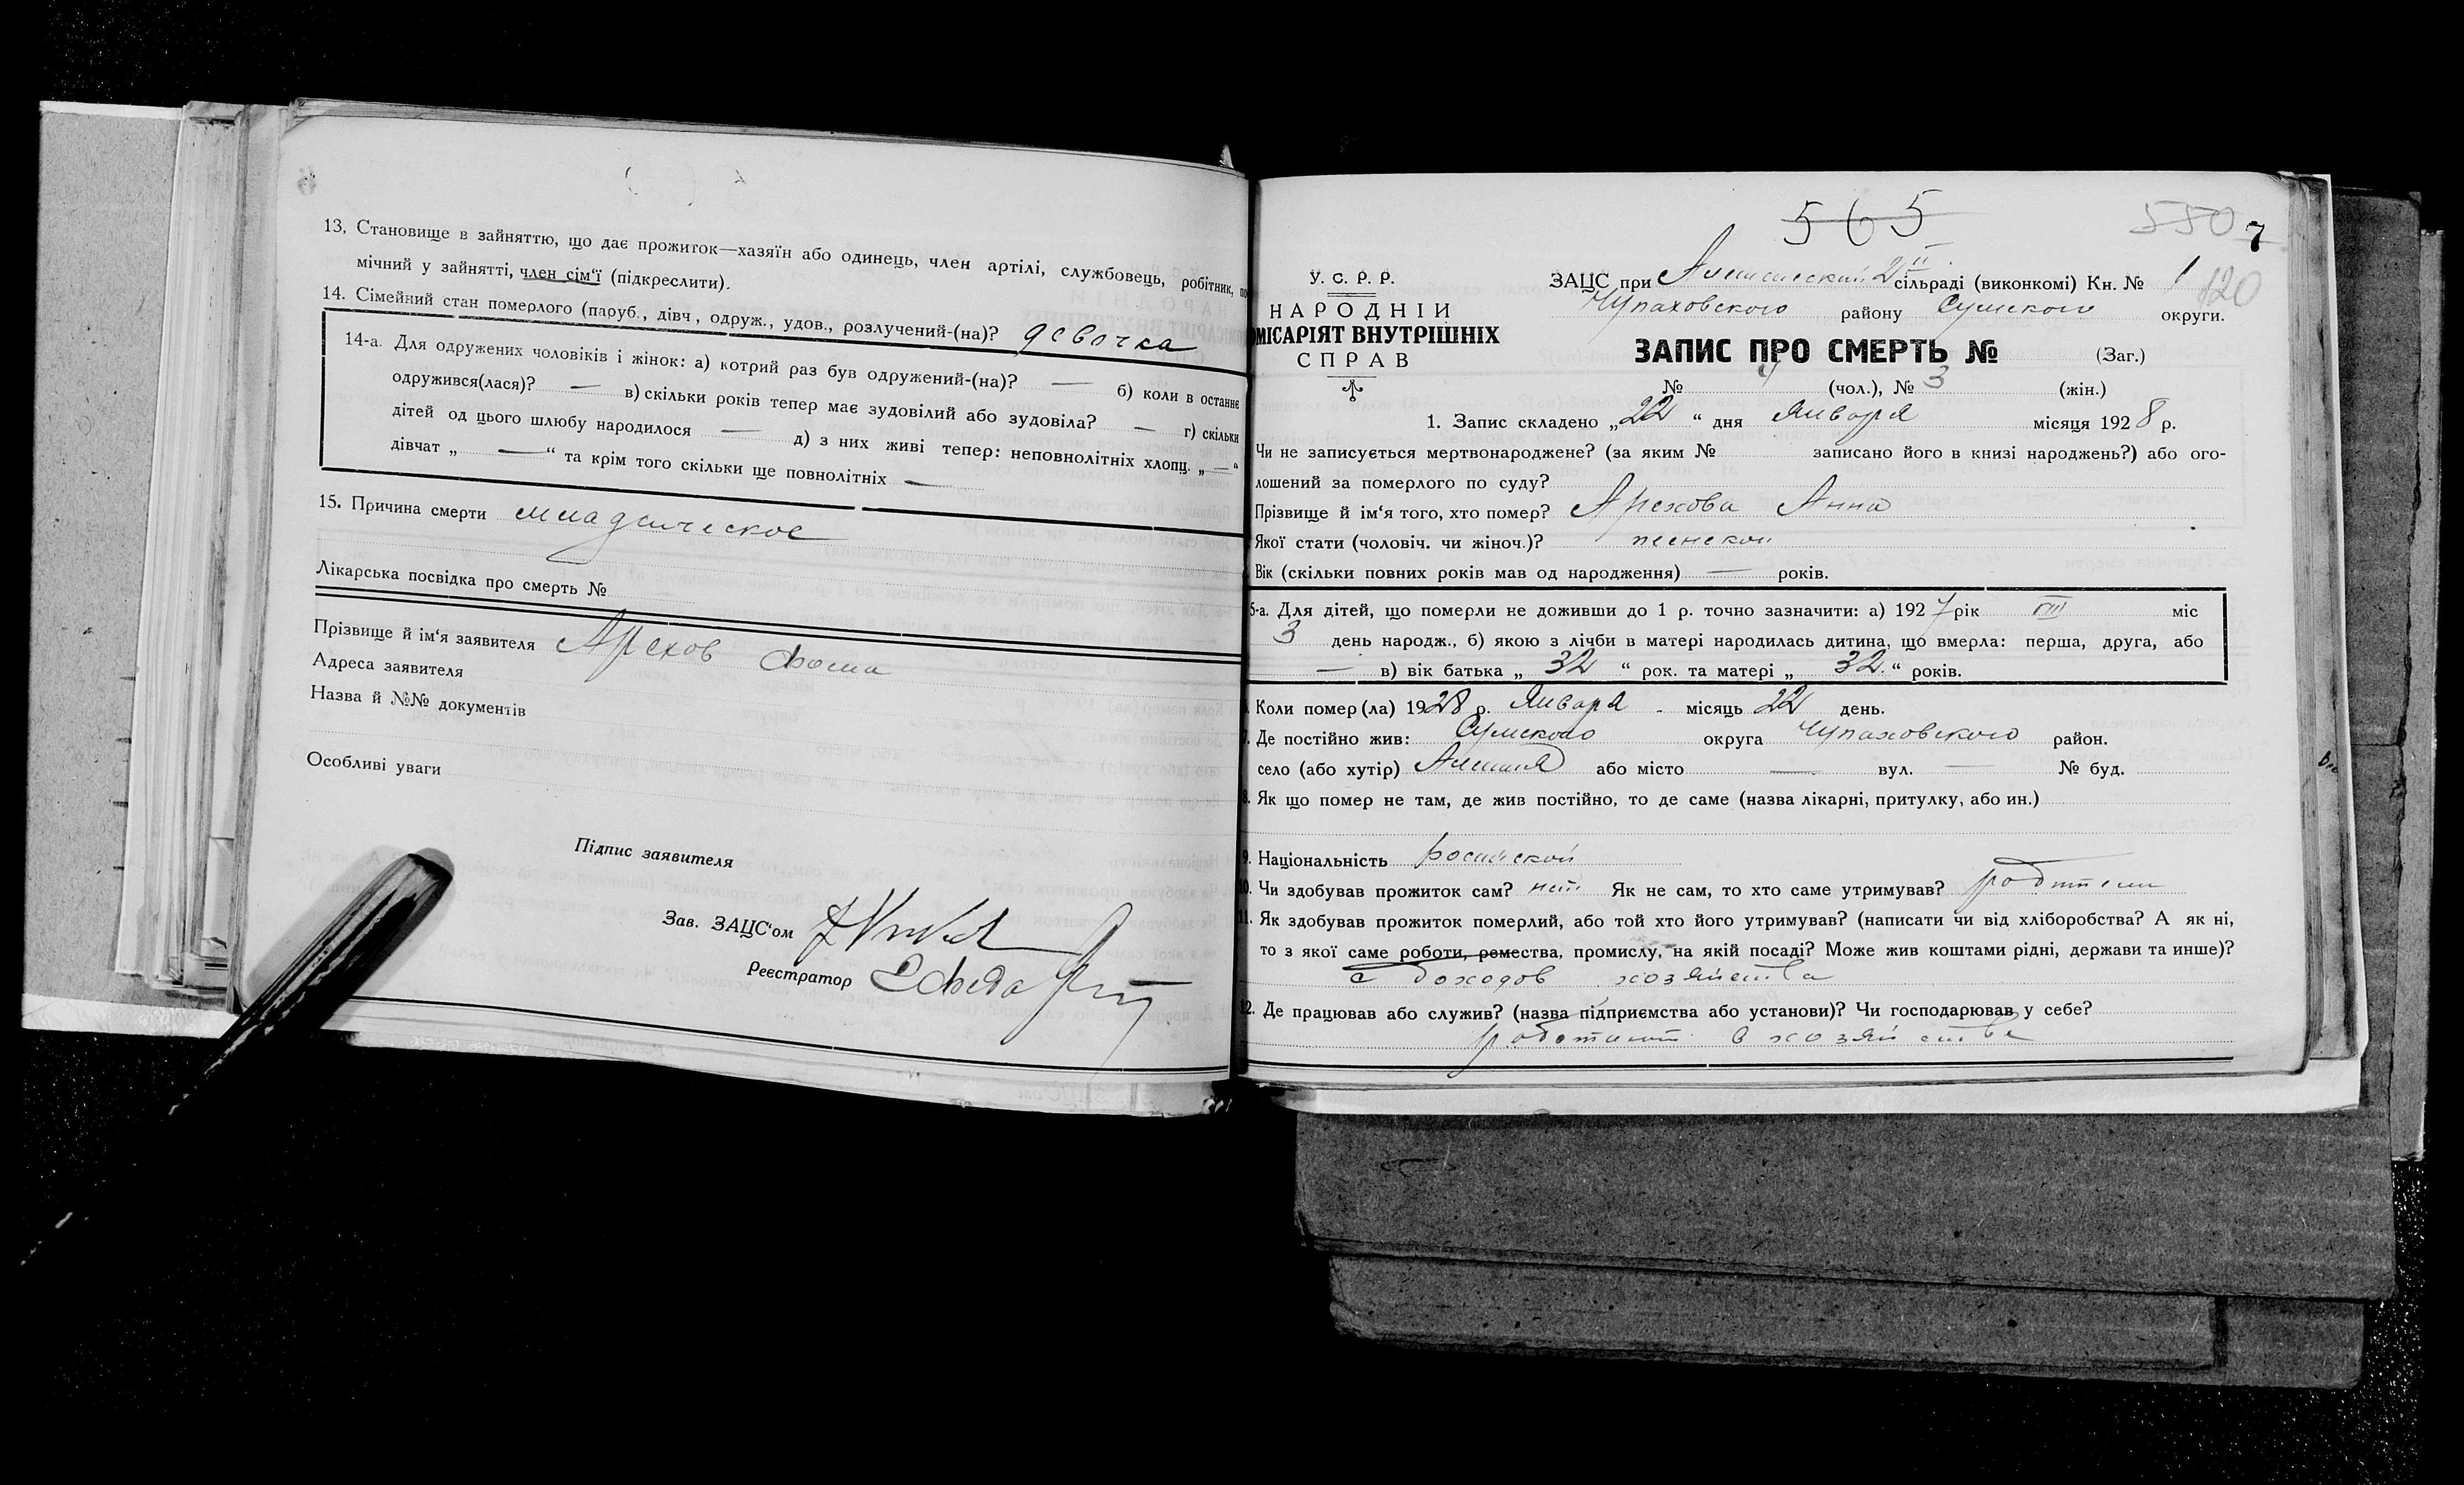 13. Становище в зайняттю, що дає прожиток—хазяїн або одинець, член артілі, службовець, робітник, по
мічний у зайнятті, член сім‘ї (підкреслити).
14. Сімейний стан померлого (паруб., дівч, одруж., удов., розлучений-(на)? девочка
14-а. Для одружених чоловіків і жінок: а) котрий раз був одружений-(на)? — б) коли в останнє
одружився(лася)? — в) скільки років тепер має зудовілий або зудовіла? — г) скільки
дітей од цього шлюбу народилося — д) з них живі тепер: неповнолітніх хлопц. „ — “
дівчат „ — “ та крім того скільки ще повнолітніх —
15. Причина смерти младенческое
Лікарська посвідка про смерть №
Прізвище й ім‘я заявителя Арехов Фома
Адреса заявителя
Назва й №№ документів
Особливі уваги
Підпис заявителя
Зав. ЗАЦС‘ом
Реєстратор
565
550 7
120
У. С. Р. Р.
НАРОДНІЙ
ОМІСАРІЯТ ВНУТРІШНІХ
СПРАВ
ЗАЦС при Алешинский 2й сільраді (виконкомі) Кн. № 1
Чупаховского району Сумского округи.
ЗАПИС ПРО СМЕРТЬ № (Заг.)
№ 4 (чол.), № 3 (жін.)
1. Запис складено „22“ дня Января місяця 1928 р.
Чи не записується мертвонароджене? (за яким № записано його в книзі народжень?) або ого-
лошений за померлого по суду?
Прізвище й ім‘я того, хто помер? Арехова Анна
Якої стати (чоловіч. чи жіноч.)? женской
Вік (скільки повних років мав од народження) — років.
5-а. Для дітей, що померли не доживши до 1 р. точно зазначити: а) 1927 рік VIII міс
3 день народж., б) якою з лічби в матері народилась дитина, що вмерла: перша, друга, або
— в) вік батька „ 32 “ рок. та матері „ 32 “ років.
Коли помер(ла) 1928 р. Января місяць 22 день.
7. Де постійно жив: Сумского округа Чупаховского район.
село (або хутір) Алешня або місто — вул. — № буд.
8. Як що помер не там, де жив постійно, то де саме (назва лікарні, притулку, або ин.)
9. Національність Российской
10. Чи здобував прожиток сам? нет Як не сам, то хто саме утримував? родители
11. Як здобував прожиток померлий, або той хто його утримував? (написати чи від хліборобства? А як ні,
то з якої саме роботи, ремества, промислу, на якій посаді? Може жив коштами рідні, держави та инше)?
с доходов хозяйства
12. Де працював або служив? (назва підприємства або установи)? Чи господарював у себе?
работают в хозяйстве